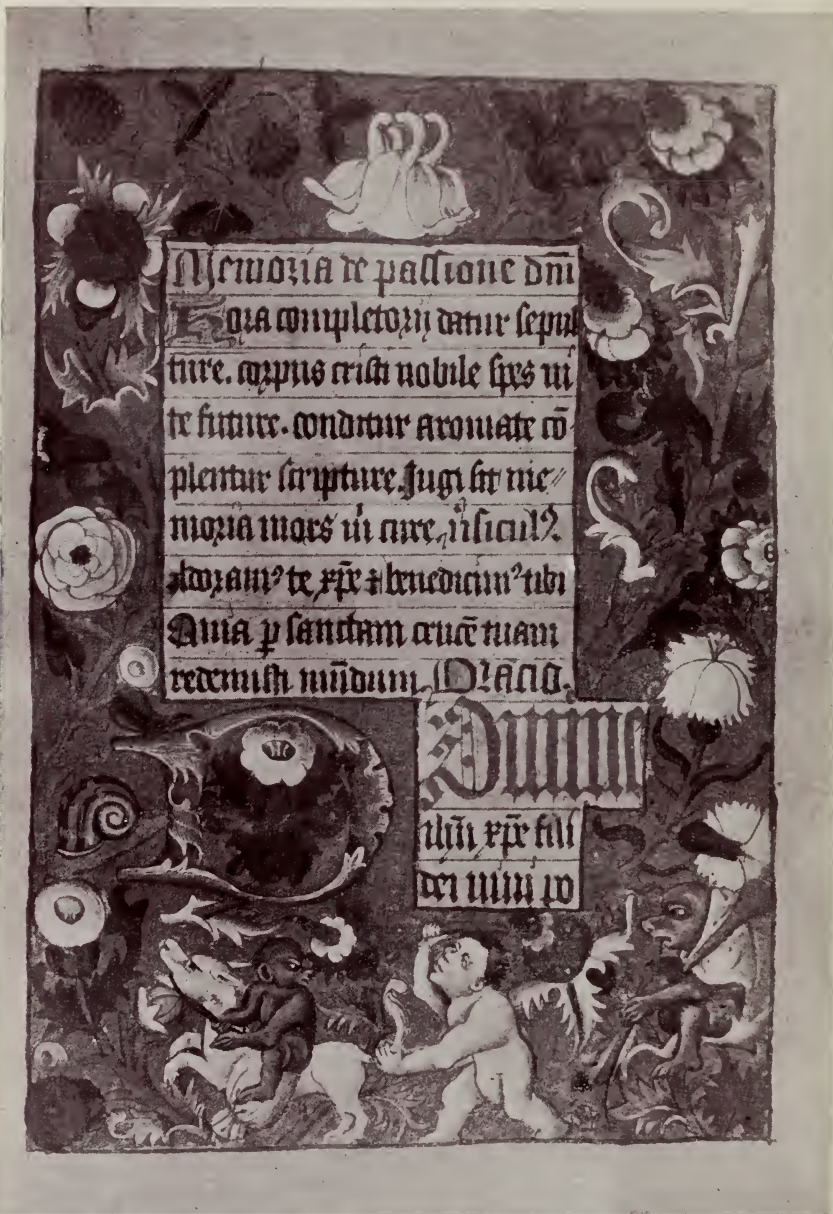 Memoria de passione dñi
Hora completorij datur sepul
ture. corpus cristi nobile spes ui
te future. conditur aromate cō
plentur scripture. Jugi sit me
moria mors m̄ cure.
Adoram⁹ te xp̄e ⁊ benedicim⁹ tibi
Quia ꝑ sanctam crucē tuam
redemisti mūdum. Oracio.
Dumme
ih̄u xp̄e fili
dei uiui po